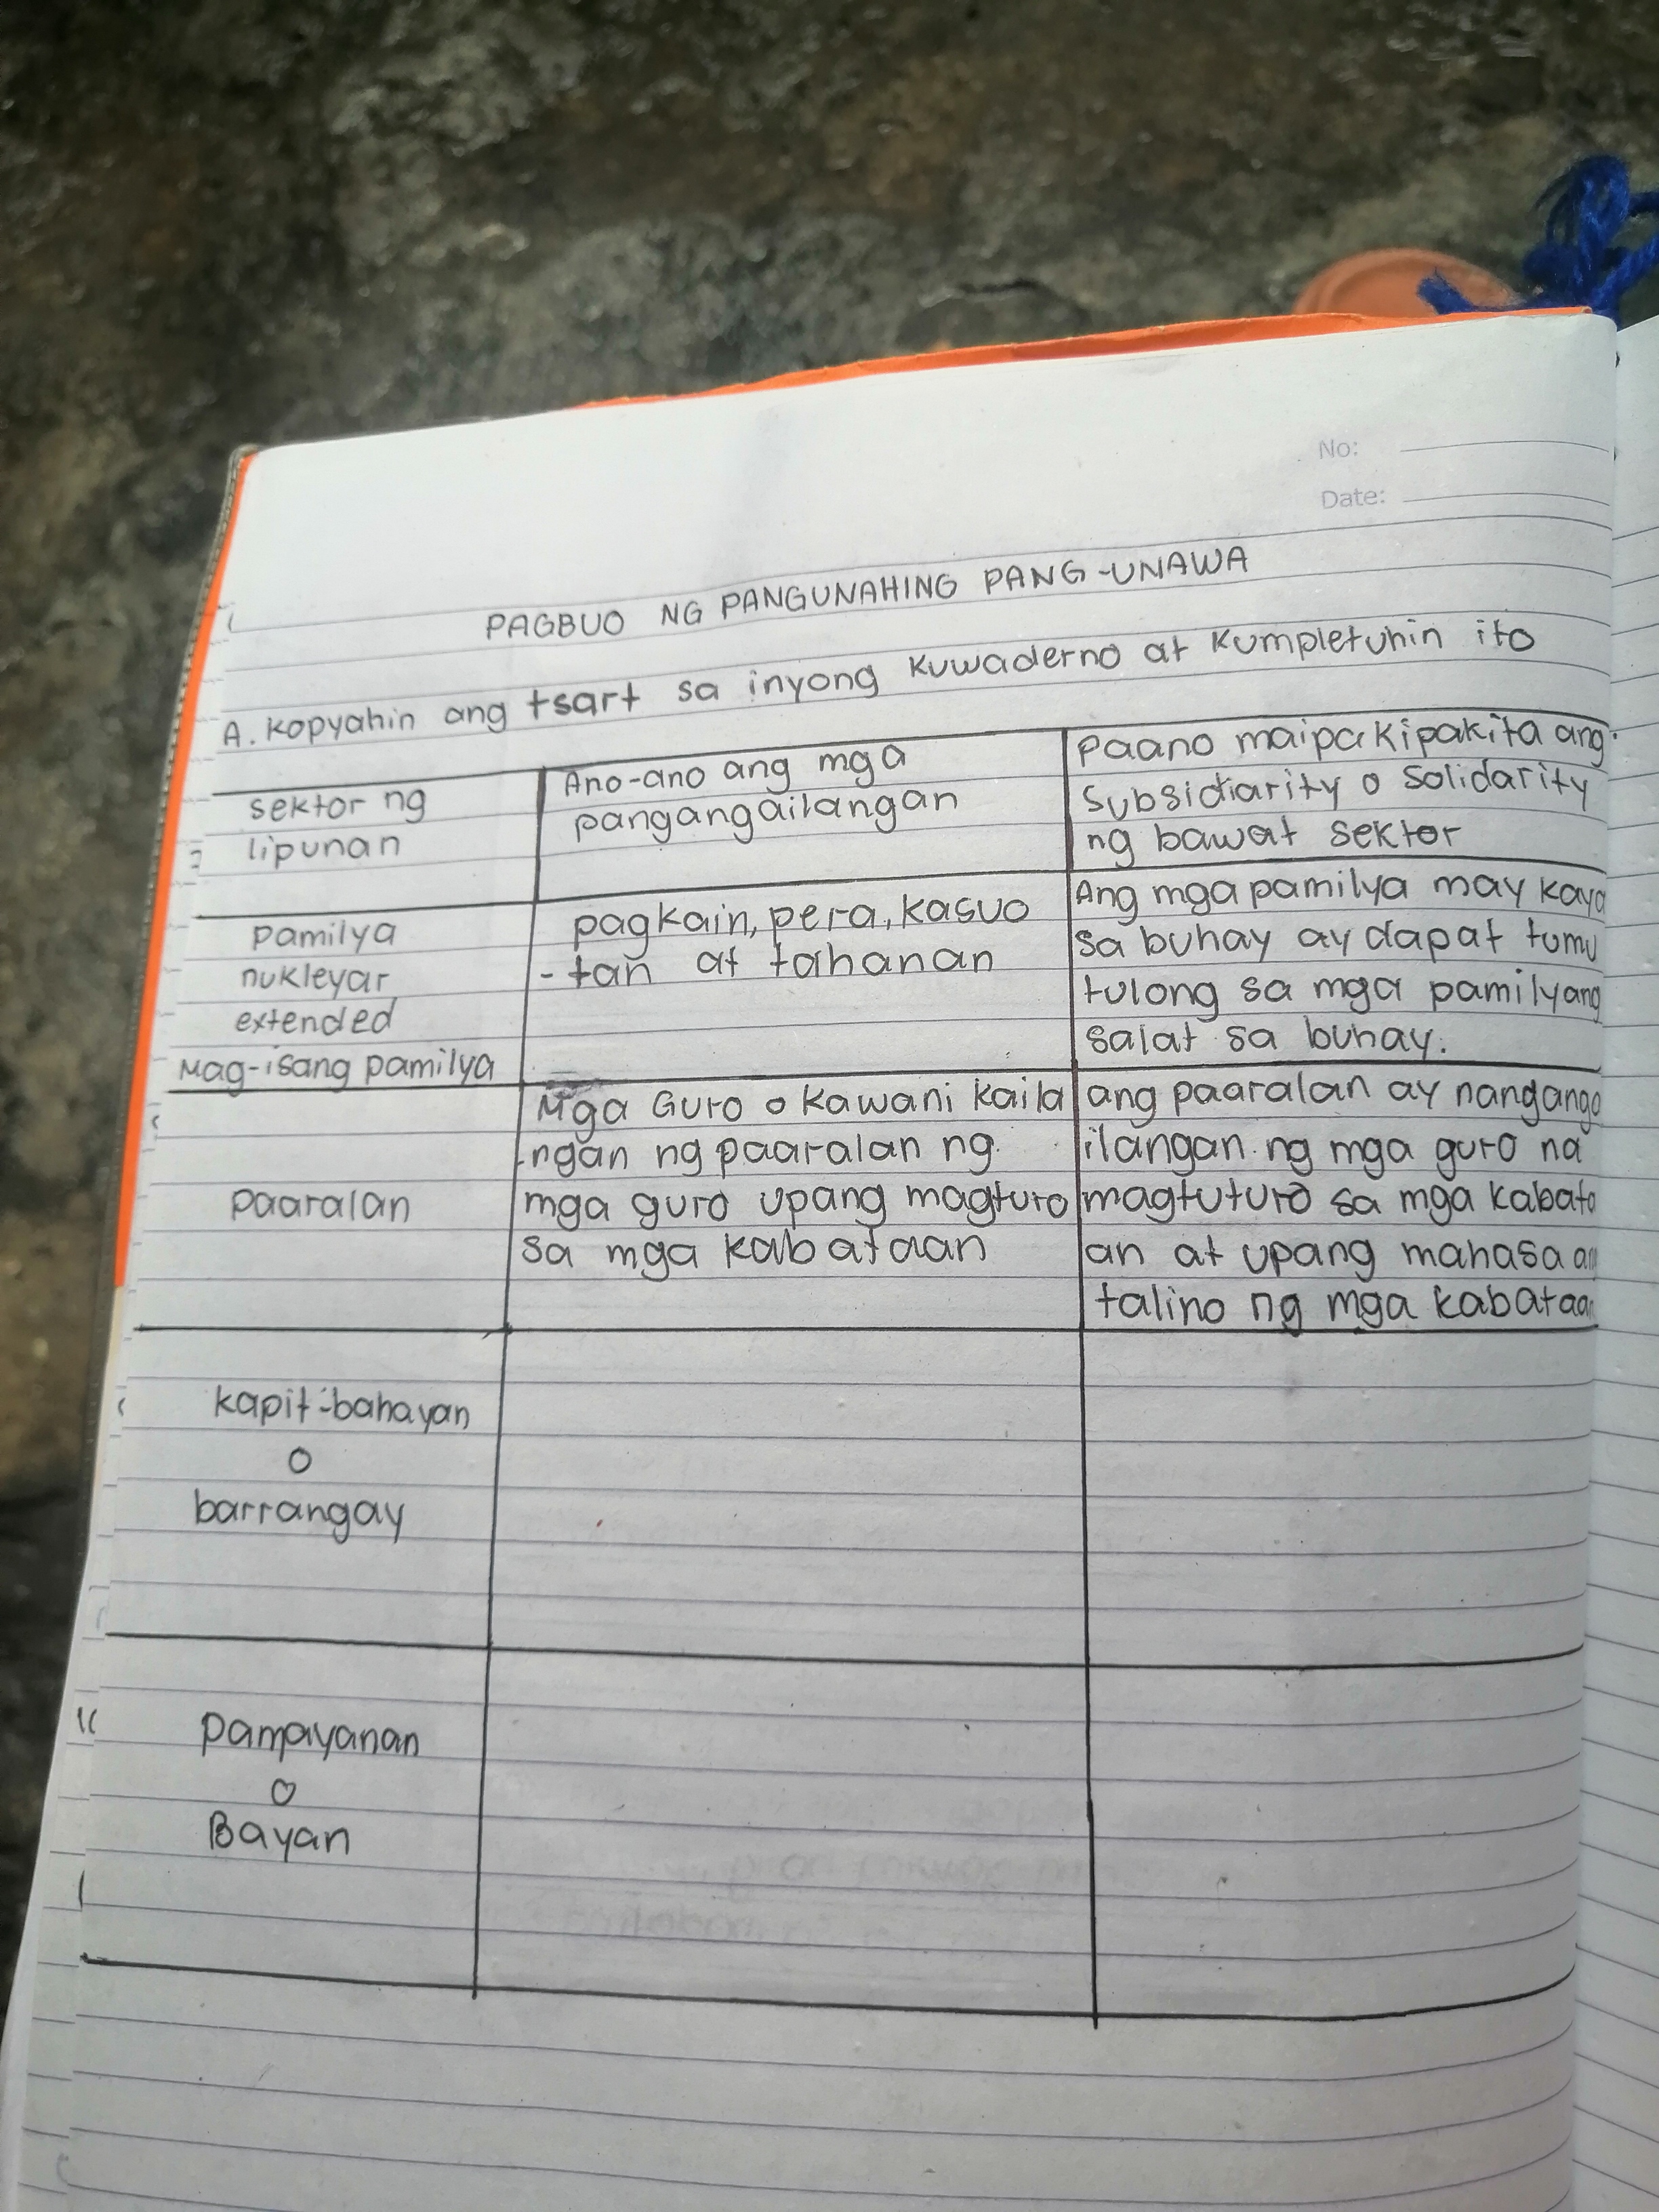 No:
Date:
PAGBUO NG PANGUNAHING PANG-UNAWA
A. Kopyahin ang tsart sa inyong kuwaderno at kumpletuhin ito
sektor ng
lipunan
Ano-ano ang mga
pangangailangan
Paano maipakipakita ang
Subsidiarity o Solidarity
ng bawat sektor
pamilya
nukleyar
extended
Mag-isang pamilya
pagkain, pera, kasuo
-tan at tahanan
Ang mga pamilya may kaya
sa buhay ay dapat tumu
tulong sa mga pamilyang
salat sa buhay.
paaralan
Mga Guro o Kawani kaila
-ngan ng paaralan ng
mga guro upang magturo
sa mga kabataan
ang paaralan ay nanganga
ilangan ng mga guro na
magtuturo sa mga kabata
an at upang mahasa an
talino ng mga kabataan
kapit-bahayan
o
barrangay
Pamayanan
o
Bayan